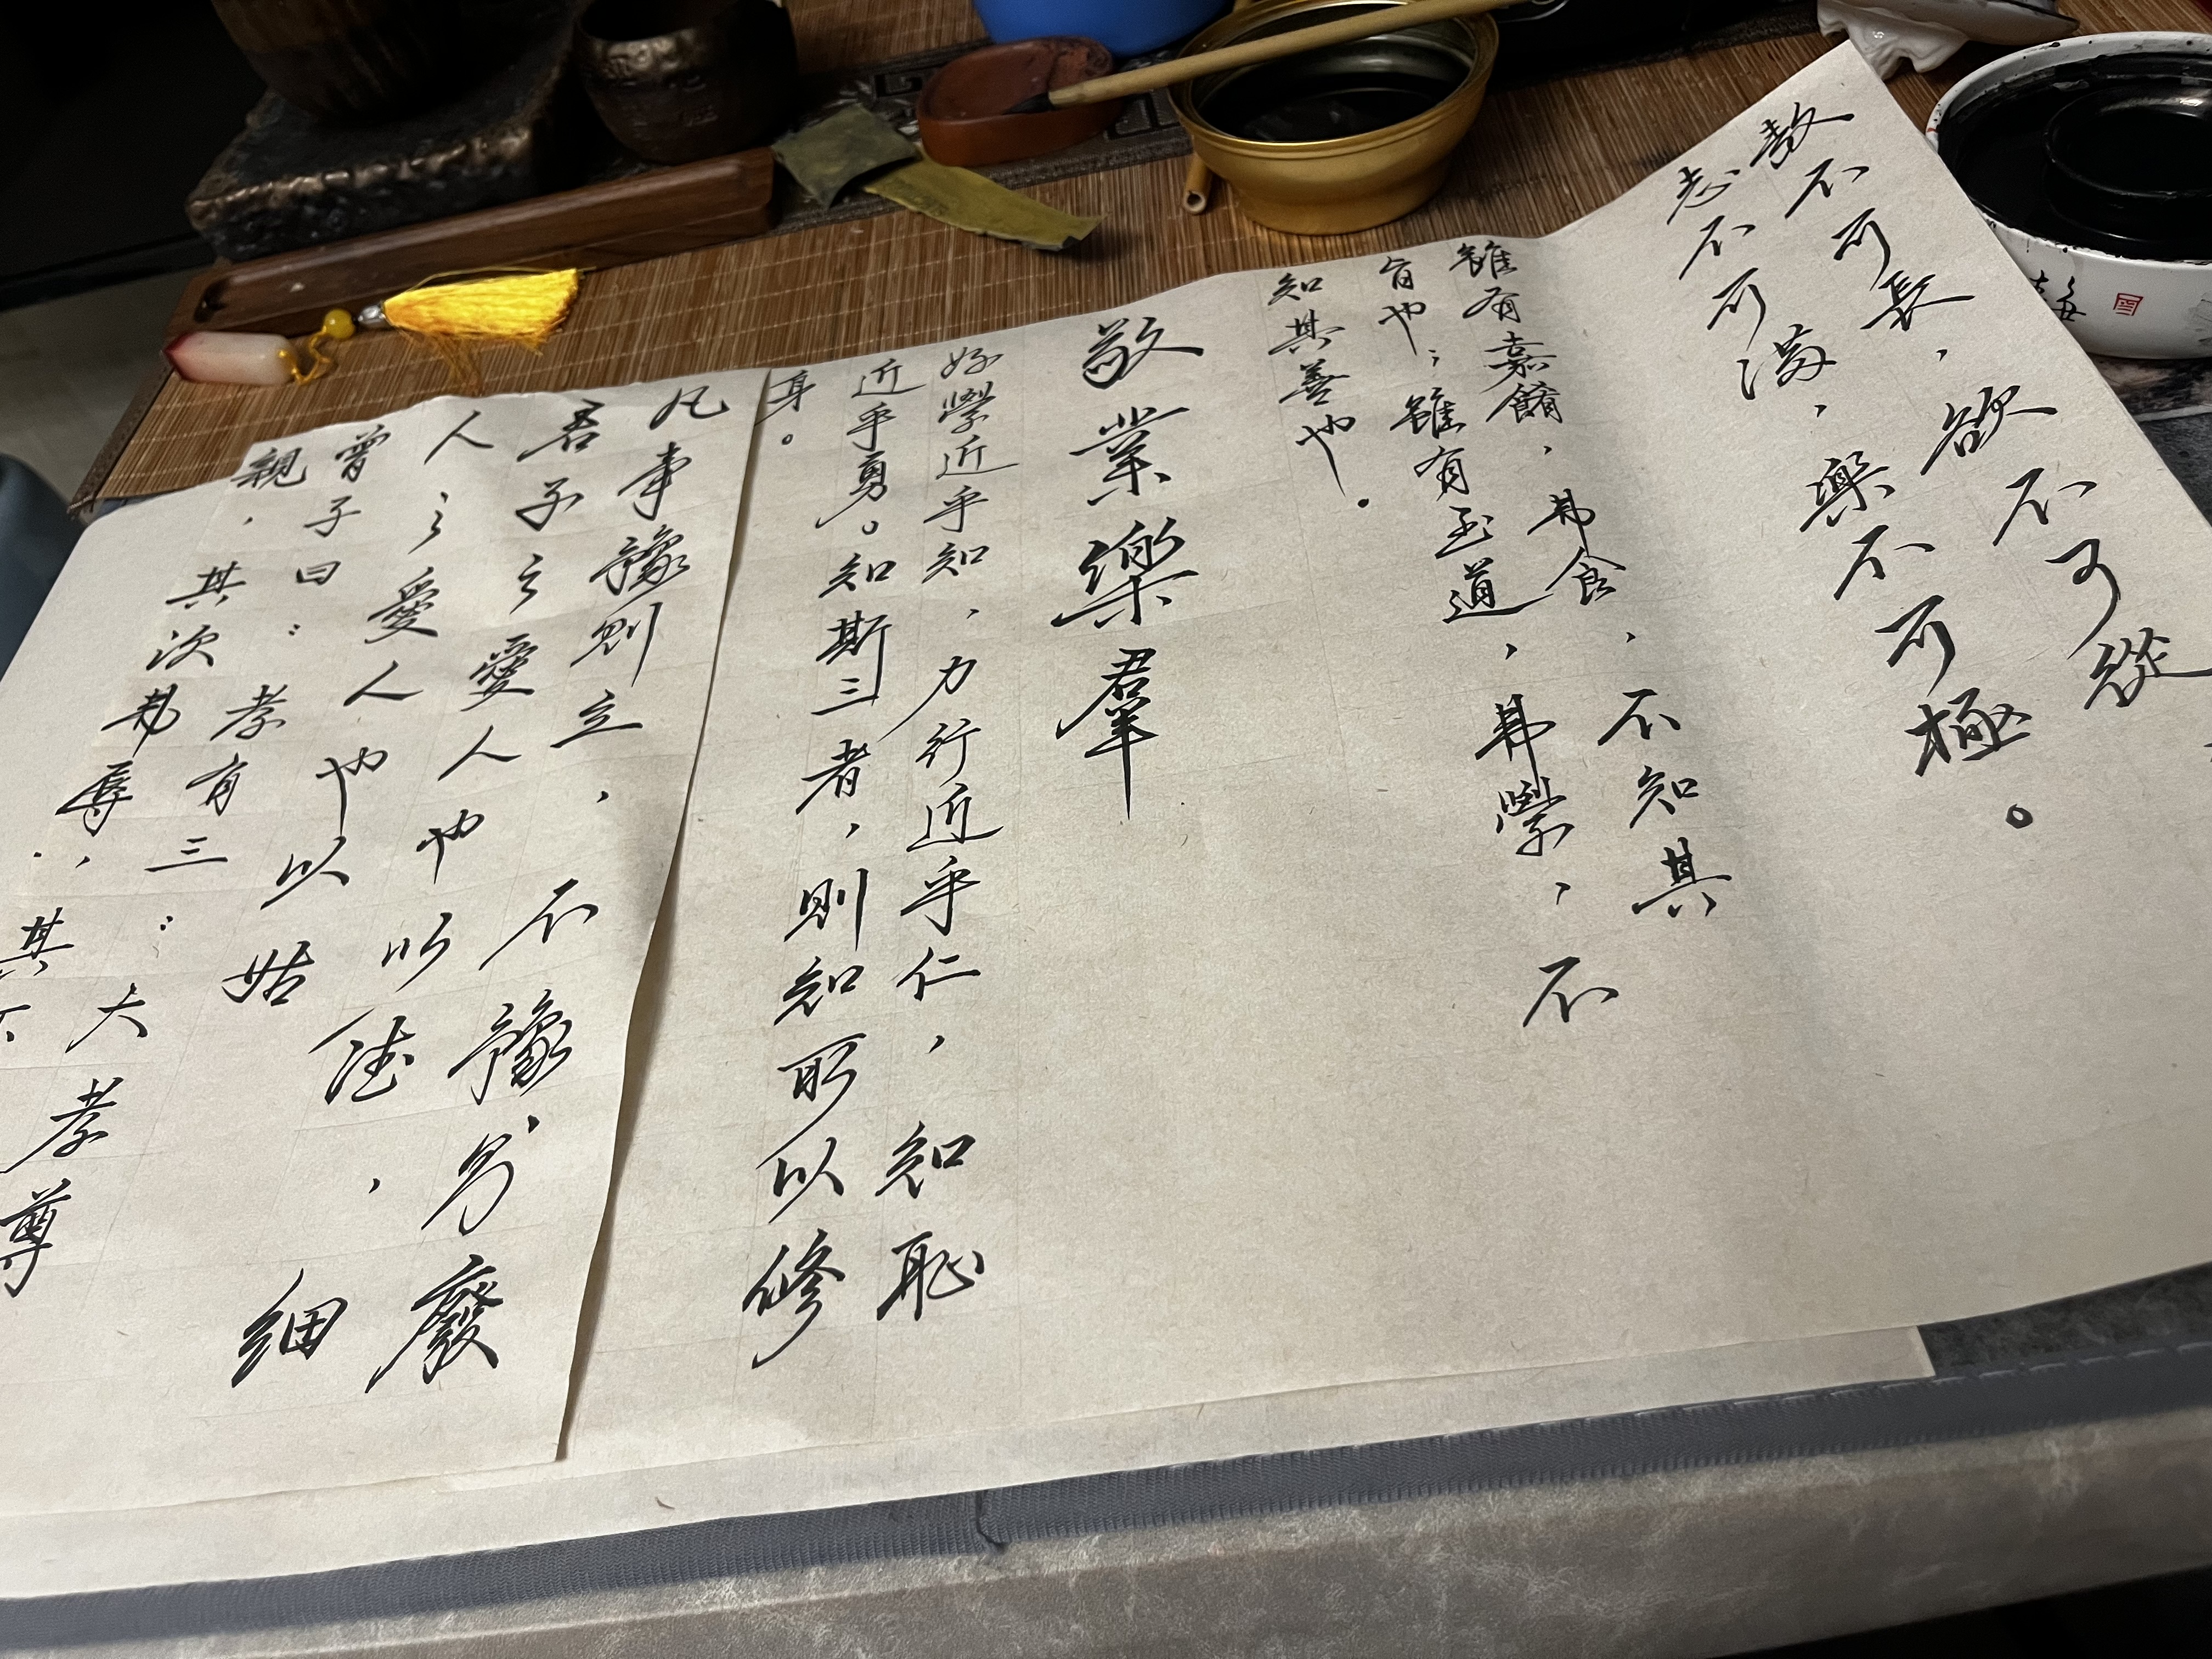 敖不可長，欲不可從
志不可滿，樂不可極。
雖有嘉餚，弗食，不知其
旨也；雖有至道，弗學，不
知其善也。
敬業樂羣
好學近乎知，力行近乎仁，知恥
近乎勇。知斯三者，則知所以修
身。
凡事豫則立，不豫則廢
君子之愛人也以德，細
人之愛人也以姑
曾子曰：孝有三：大孝尊
親，其次弗辱，其下